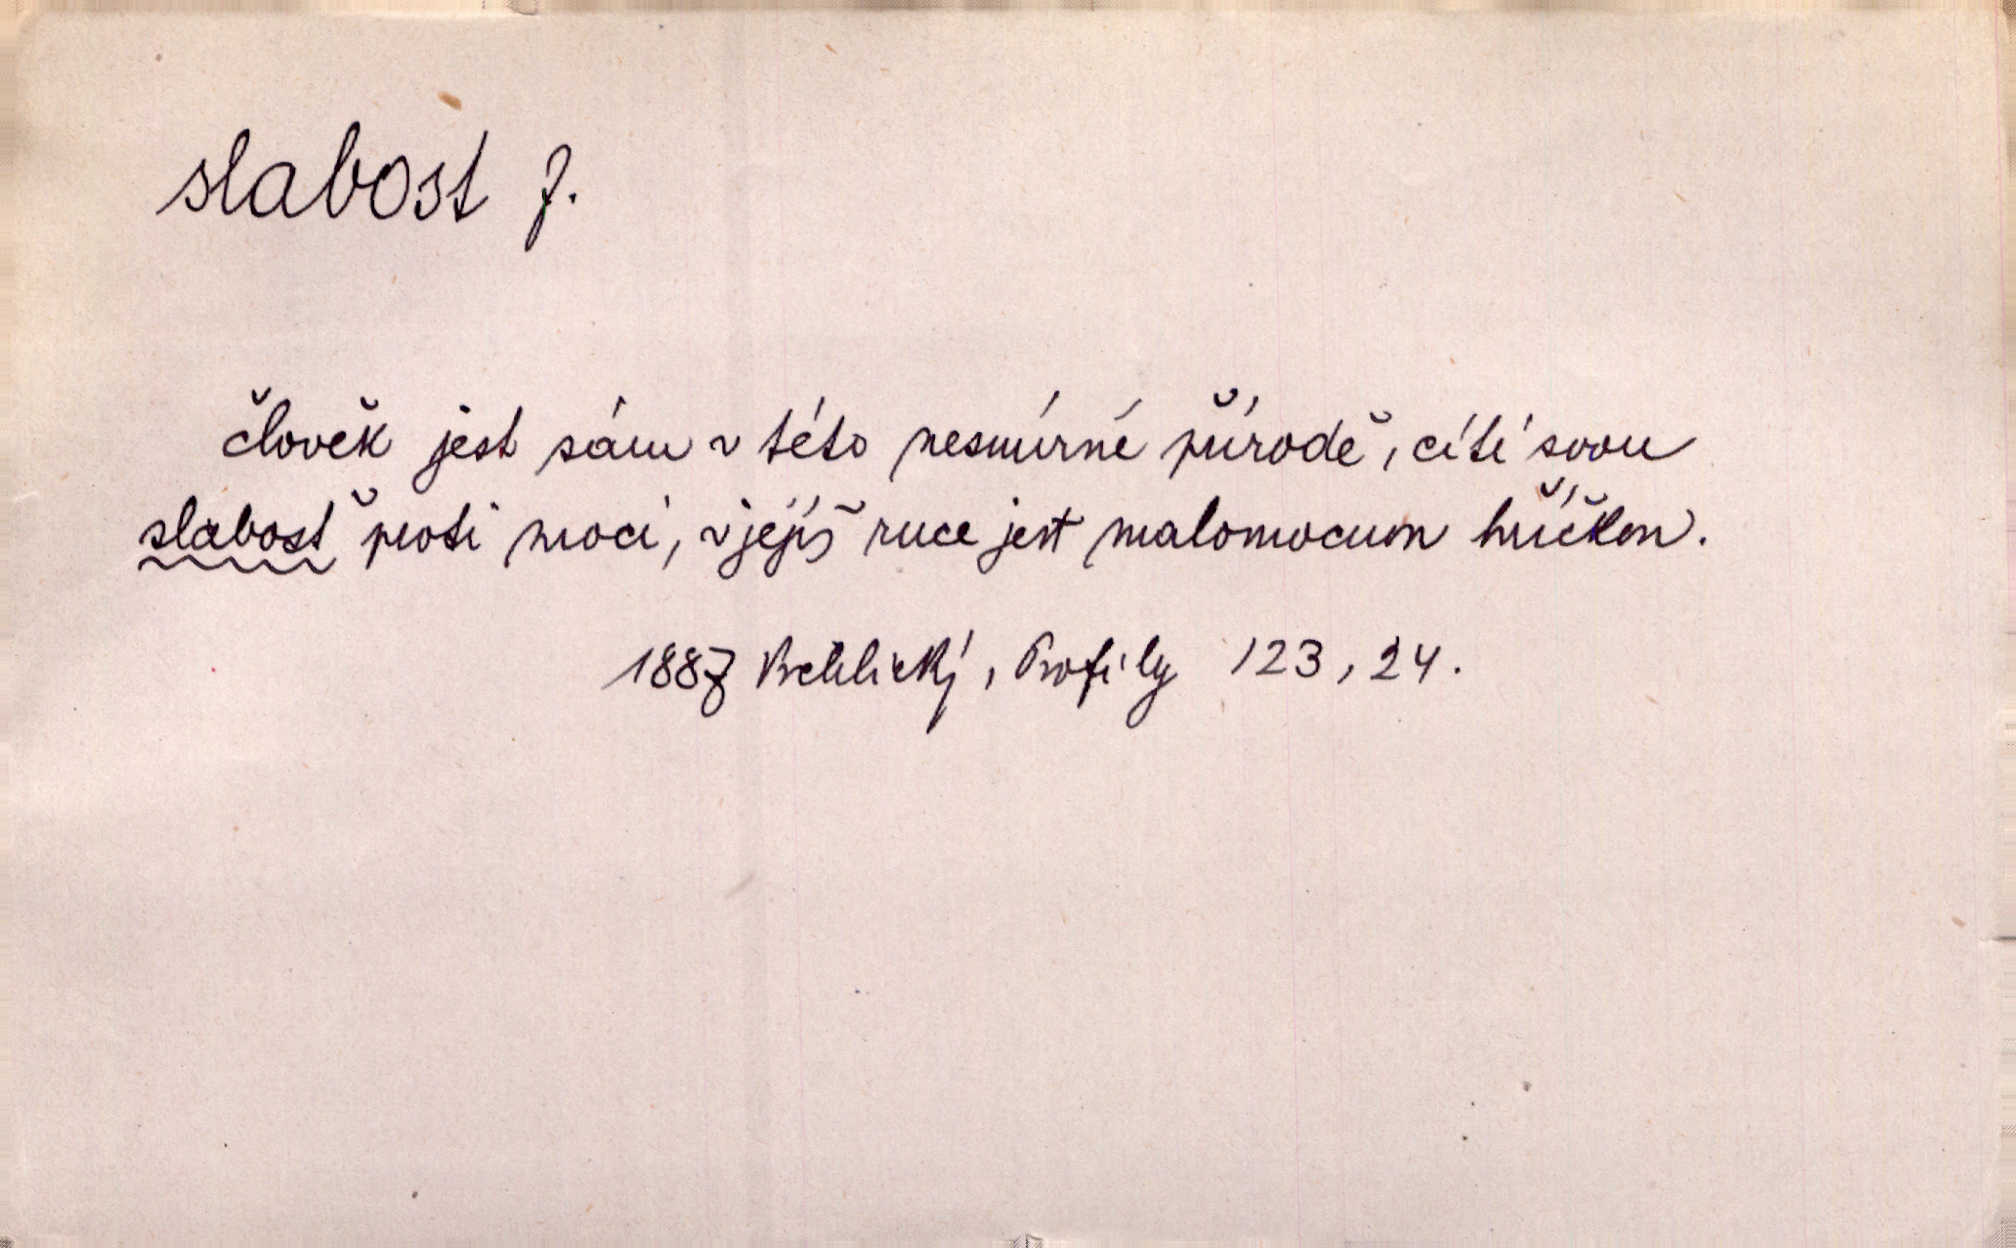 slabost f.
člověk jest sám v této nesmírné přírodě, cítí svou
slabost proti moci, v jejíž ruce jest malomocnou hříčkou.
1887 Vrchlický, Profily 123, 24.